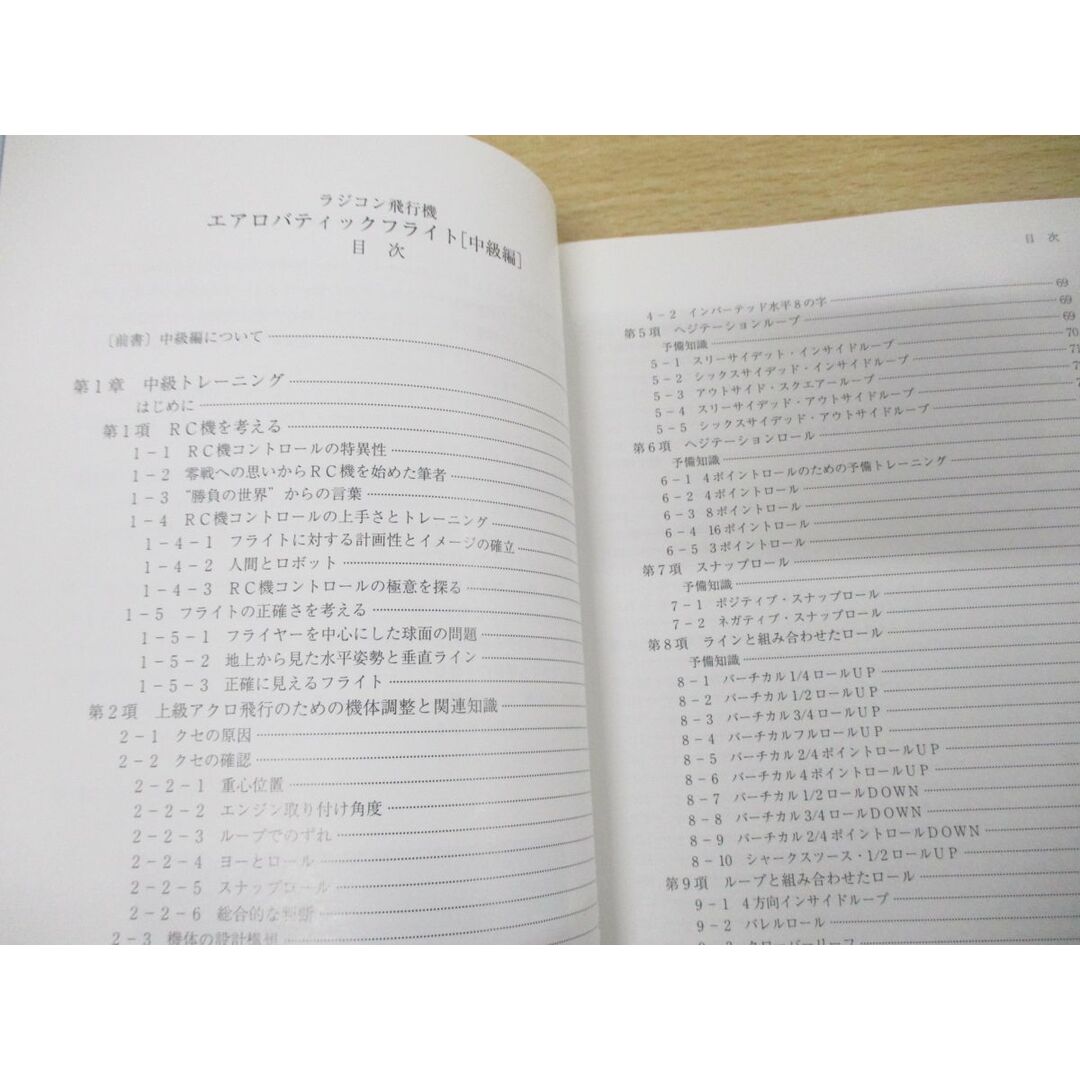 ラジコン飛行機
エアロバティックフライト[中級編]
目 次
〔前書〕中級編について
第1章 中級トレーニング
はじめに
第1項 RC機を考える
1-1 RC機コントロールの特異性
1-2 零戦への思いからRC機を始めた筆者
1-3 “勝負の世界”からの言葉
1-4 RC機コントロールの上手さとトレーニング
1-4-1 フライトに対する計画性とイメージの確立
1-4-2 人間とロボット
1-4-3 RC機コントロールの極意を探る
1-5 フライトの正確さを考える
1-5-1 フライヤーを中心にした球面の問題
1-5-2 地上から見た水平姿勢と垂直ライン
1-5-3 正確に見えるフライト
第2項 上級アクロ飛行のための機体調整と関連知識
2-1 クセの原因
2-2 クセの確認
2-2-1 重心位置
2-2-2 エンジン取り付け角度
2-2-3 ループでのずれ
2-2-4 ヨーとロール
2-2-5 スナップロール
2-2-6 総合的な判断
2-3 機体の設計構想
目 次
4-2 インバーテッド水平8の字 69
第5項 ヘジテーションループ 69
予備知識 69
5-1 スリーサイデット・インサイドループ 70
5-2 シックスサイデッド・インサイドループ 71
5-3 アウトサイド・スクエアーループ
5-4 スリーサイデッド・アウトサイドループ
5-5 シックスサイデッド・アウトサイドループ
第6項 ヘジテーションロール
予備知識
6-1 4ポイントロールのための予備トレーニング
6-2 4ポイントロール
6-3 8ポイントロール
6-4 16ポイントロール
6-5 3ポイントロール
第7項 スナップロール
予備知識
7-1 ポジティブ・スナップロール
7-2 ネガティブ・スナップロール
第8項 ラインと組み合わせたロール
予備知識
8-1 バーチカル1/4ロールUP
8-2 バーチカル1/2ロールUP
8-3 バーチカル3/4ロールUP
8-4 バーチカルフルロールUP
8-5 バーチカル2/4ポイントロールUP
8-6 バーチカル4ポイントロールUP
8-7 バーチカル1/2ロールDOWN
8-8 バーチカル3/4ロールDOWN
8-9 バーチカル2/4ポイントロールDOWN
8-10 シャークスツース・1/2ロールUP
第9項 ループと組み合わせたロール
9-1 4方向インサイドループ
9-2 バレルロール
9-3 クローバーリーフ